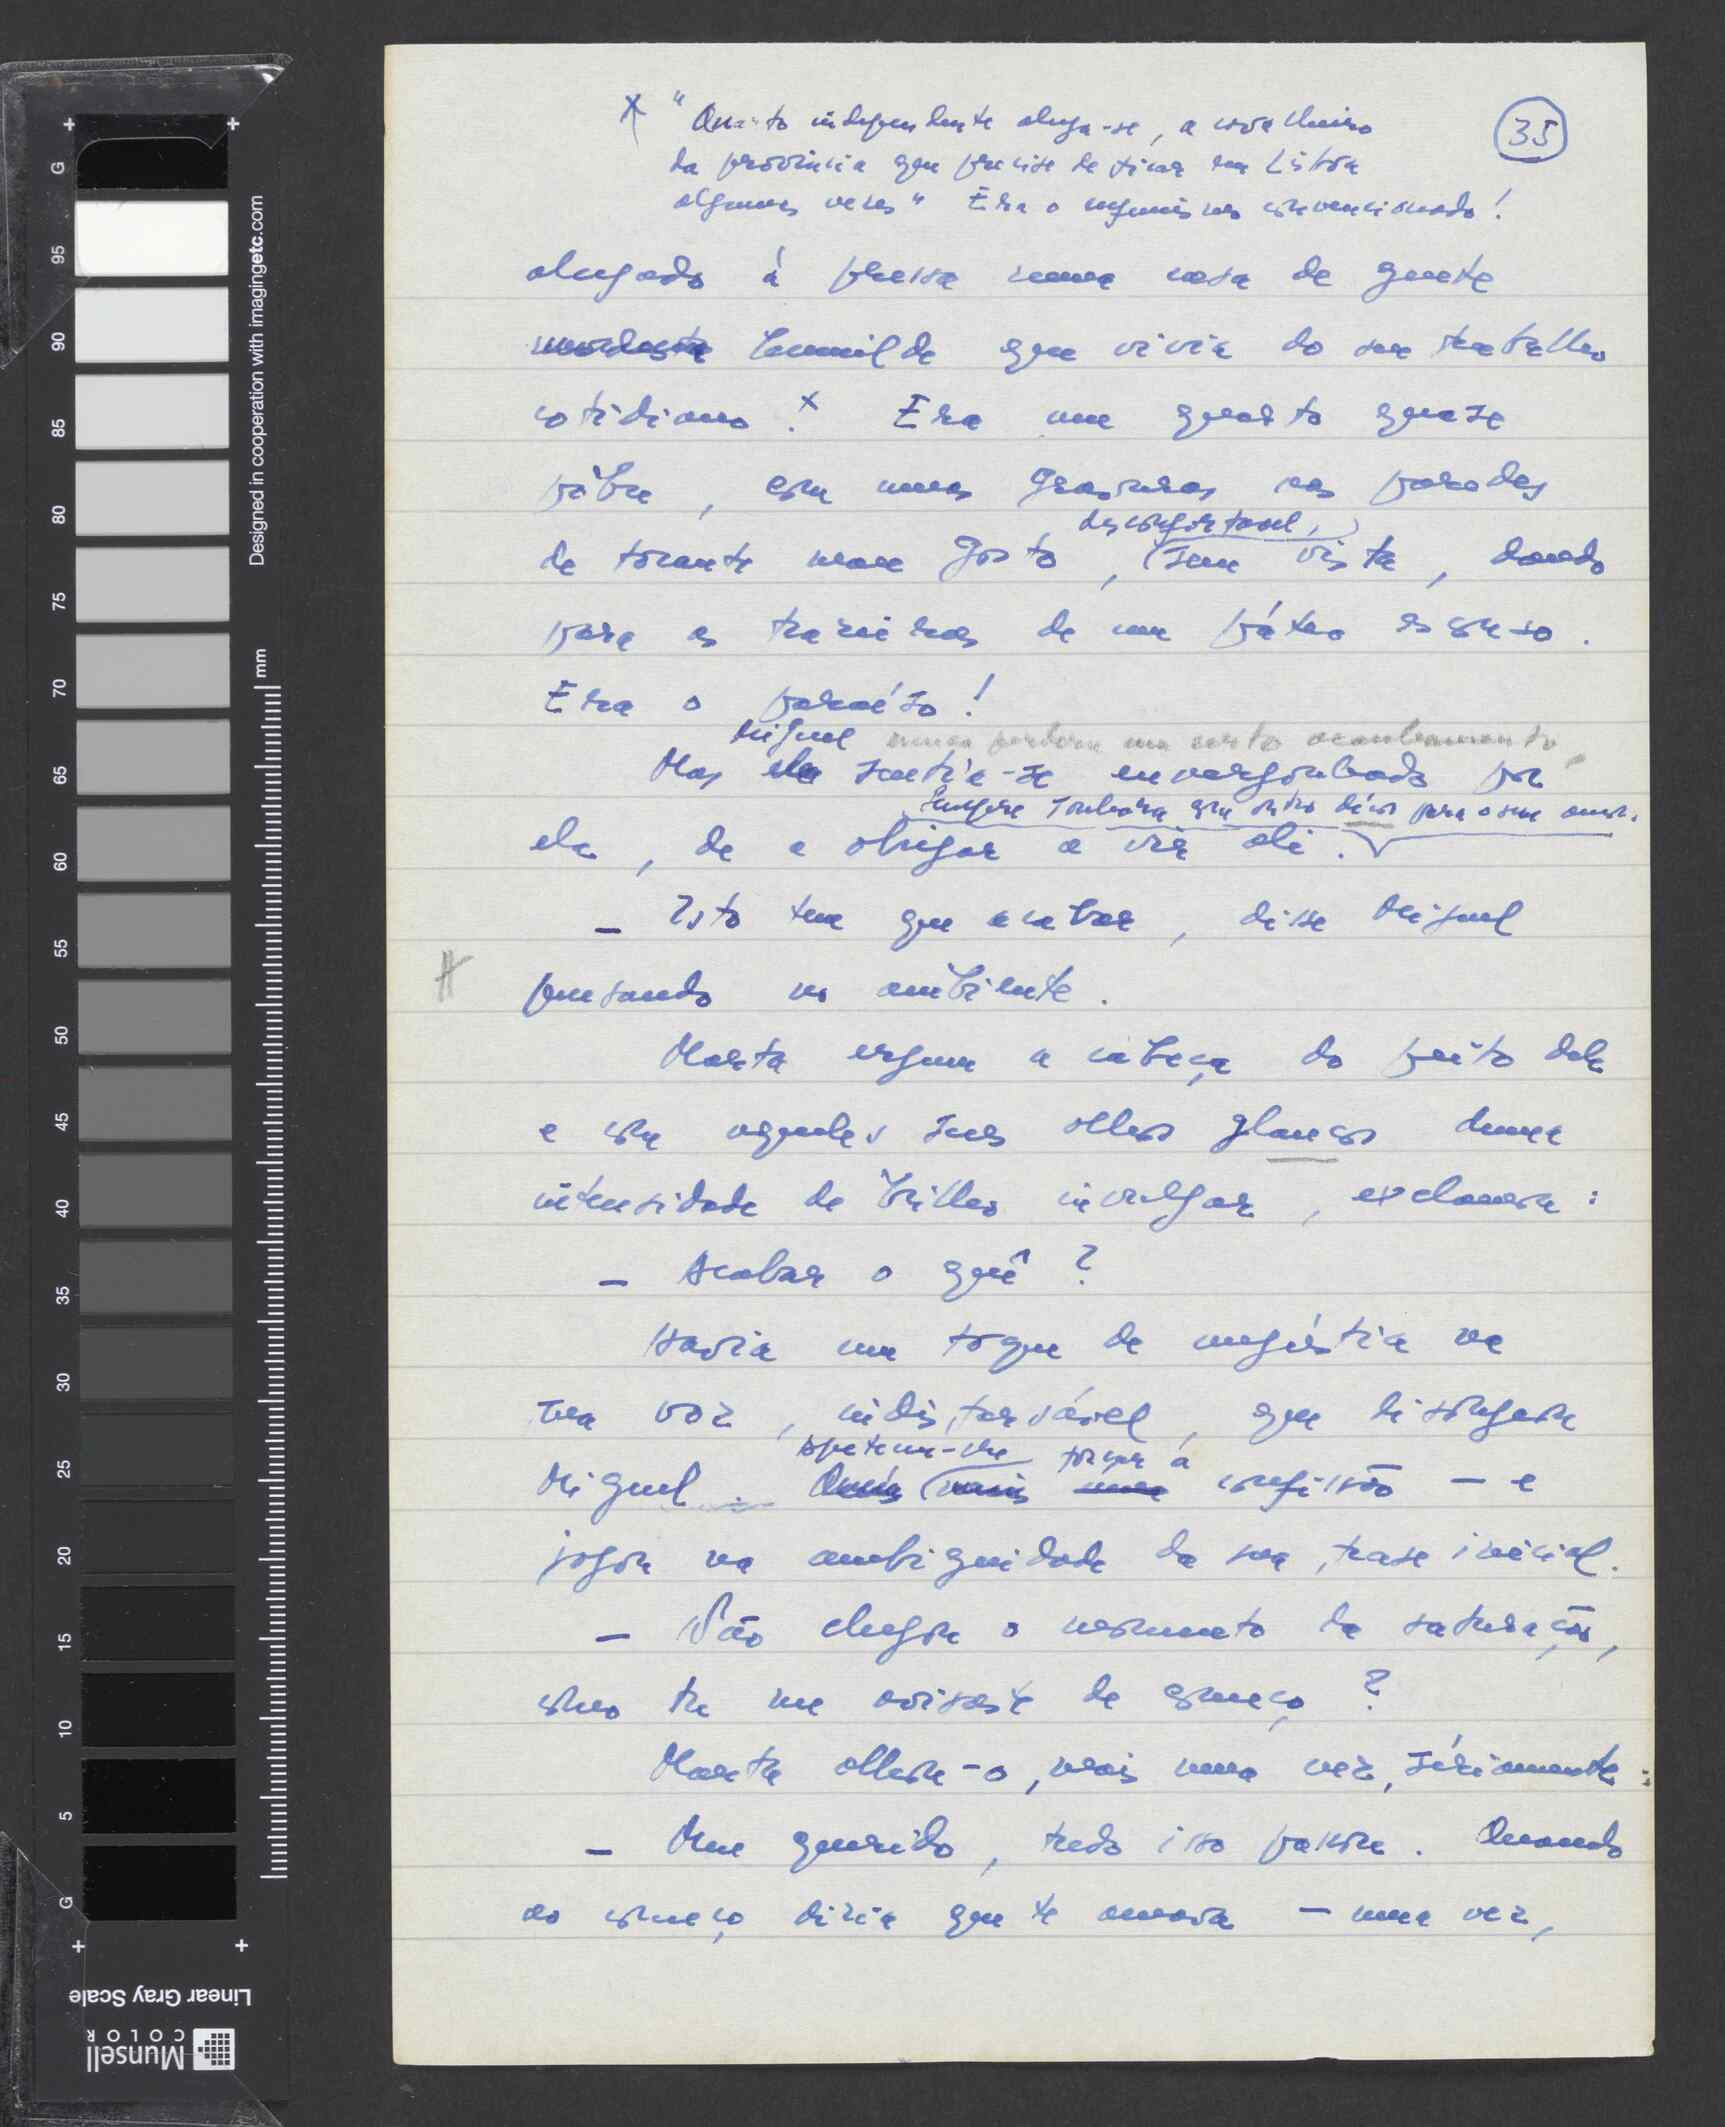 35
* "Quarto independente aluga-se, a cavalheiro
da província que precise de ficar em Lisboa
algumas vezes" Era o eufemismo convencionado!
alugado à pressa numa casa de gente
modesta humilde que vivia do seu trabalho
cotidiano. x Era um quarto quase
pobre, com umas gravuras nas paredes
desconfortavel,
de tocante mau gosto, sem vista, dando
para as traseiras de um pátio escuso.
Era o paraíso!
Miguel nunca perdera um certo acanhamento
Mas ele sentia-se envergonhado por
Sempre sonhara com outro décor para o seu amor.
ela, de a obrigar a vir ali.
— Isto tem que acabar, disse Miguel
pensando no ambiente.
Marta ergueu a cabeça do peito dele
e com aqueles seus olhos glaucos duma
intensidade de brilho invulgar, exclamou:
— Acabar o quê?
Havia um toque de angústia na
sua voz, indisfarsável, que lisongeou
apeteceu-lhe forçar a
Miguel. Quis mais uma confissão — e
jogou na ambiguidade da sua frase inicial.
— Não chegou o momento da saturação,
como tu me avisaste de começo?
Marta olhou-o, mais uma vez, sériamente:
— Meu querido, tudo isso passou. Quando
ao começo dizia que te amava — uma vez,
Designed in cooperation with imagingetc.com
mm
G
95
90
85
80
75
70
65
60
55
50
45
40
35
30
25
20
15
10
5
G
Linear Gray Scale
Munsell
COLOR